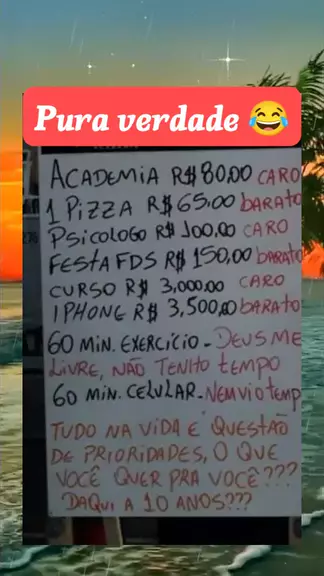 Pura verdade 😂
ACADEMIA R$80,00 CARO
1 PIZZA R$65.00 BARATO
PSICOLOGO R$ 100,00 CARO
FESTA FDS R$ 150,00 BARATO
CURSO R$ 3,000,00 CARO
IPHONE R$ 3,500,00 BARATO
60 MIN. EXERCÍCIO - DEUS ME
LIVRE, NÃO TENHO TEMPO
60 MIN. CELULAR - NEM VIO TEMP
TUDO NA VIDA É QUESTÃO
DE PRIORIDADES, O QUE
VOCÊ QUER PRA VOCÊ???
DAQUI A 10 ANOS???